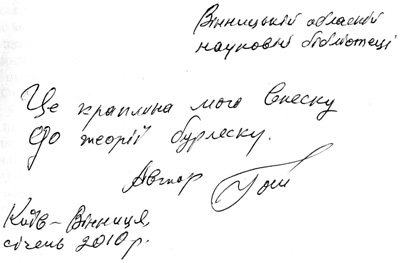 Вінницькій обласній
науковій бібліотеці
Це краплина мого внеску
До теорії бурлеску.
Автор
Київ – Вінниця,
січень 2010 р.